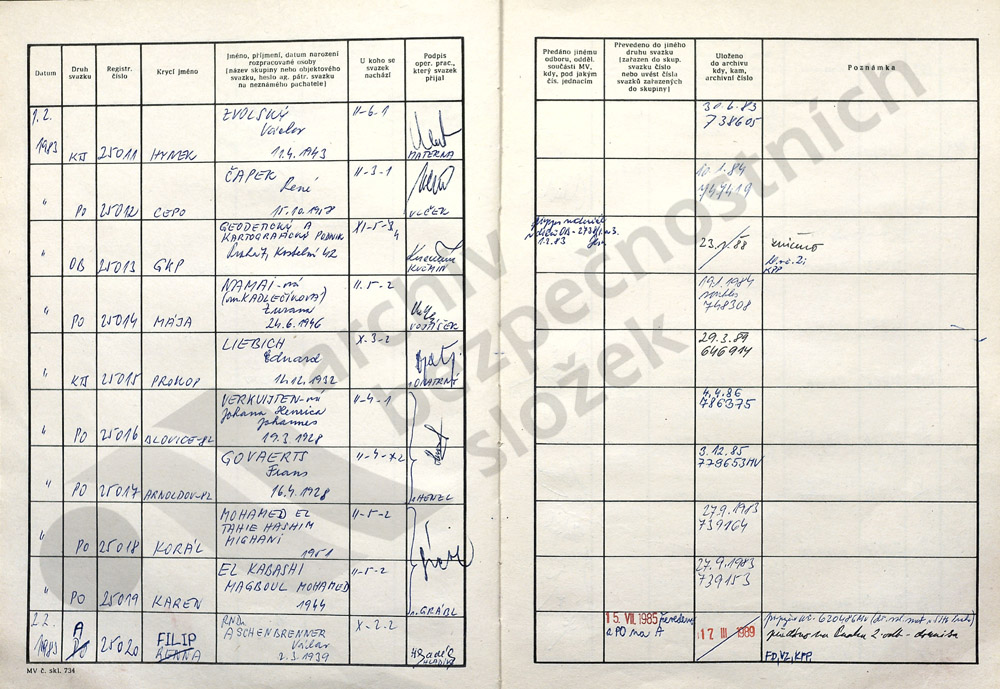 Datum
Druh svazku
Registr. číslo
Krycí jméno
Jméno, příjmení, datum narození
rozpracované osoby
(název skupiny nebo objektového
svazku, heslo ag. pátr. svazku
na neznámého pachatele)
U koho se
svazek
nachází
Podpis
oper. prac.,
který svazek
přijal
Předáno jinému
odboru, odděl.
součásti MV,
kdy, pod jakým
čís. jednacím
Převedeno do jiného
druhu svazku
(zařazen do skup.
svazku číslo
nebo uvést čísla
svazků zařazených
do skupiny)
Uloženo
do archivu
kdy, kam,
archivní číslo
Poznámka
1.2.
1983 KTS 25011 HYNEK
ZVOLSKÝ
Václav
11.4.1943
II-6-1
MATERNA
30.6.83
738605
" PO 25012 CEPO
ČAPEK
René
15.10.1958
II-3-1
VLČEK
10.1.84
747419
" OB 25013 GKP
GEODETICKÝ A
KARTOGRAFICKÝ PODNIK
Praha 7, Kostelní 42
XI-5-3
4
KUČHIN
1.3.83
23. /88
zničeno
KPP
" PO 25014 MÁJA
NAMAI-ová
(roz. KADLEČÍKOVÁ)
Zuzana
24.6.1946
II.5-2
VOJTÍŠEK
19.1.1984
748308
" KTS 25015 PROKOP
LIEBICH
Eduard
14.12.1932
X-3-2
OPATRNÝ
29.3.89
646914
" PO 25016 BLOVICE-82
VERKUIJTEN-ová
Johana Henrica
Johannes
19.3.1928
II-4-1
4.4.86
786375
" PO 25017 ARNOLDOV-82
GOVAERTS
Frans
16.4.1928
II-4-X2
HENZL
3.12.85
779653MV
" PO 25018 KORÁL
MOHAMED EL
TAHIE HASHIM
MIGHANI
1951
II-5-2
27.9.1983
739164
" PO 25019 KAREN
EL KABASHI
MAGBOUL MOHAMED
1944
II-5-2
GRÁBL
27.9.1983
739153
2.2.
1983 A
PO 25020 FILIP
RENNA
RNDr
ASCHENBRENNER
Václav
2.3.1939
X-2-2
HLADÍK
15. VII. 1985 převedeno
z PO na A
17 III 1989
FD, VZ, KPP.
MV č. skl. 734
archiv
bezpečnostních
složek